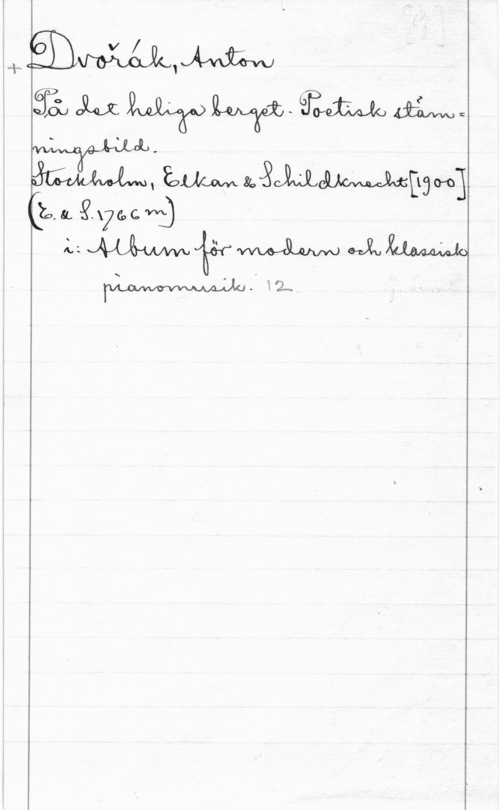 + Dvořák, Anton
På det heliga berget. Poetisk stäm=
ningsbild.
Stockholm, Elkan & Schildknecht [1900]
(E. & S. 1766 m)
i: Album för modern och klassisk
pianomusik. 12